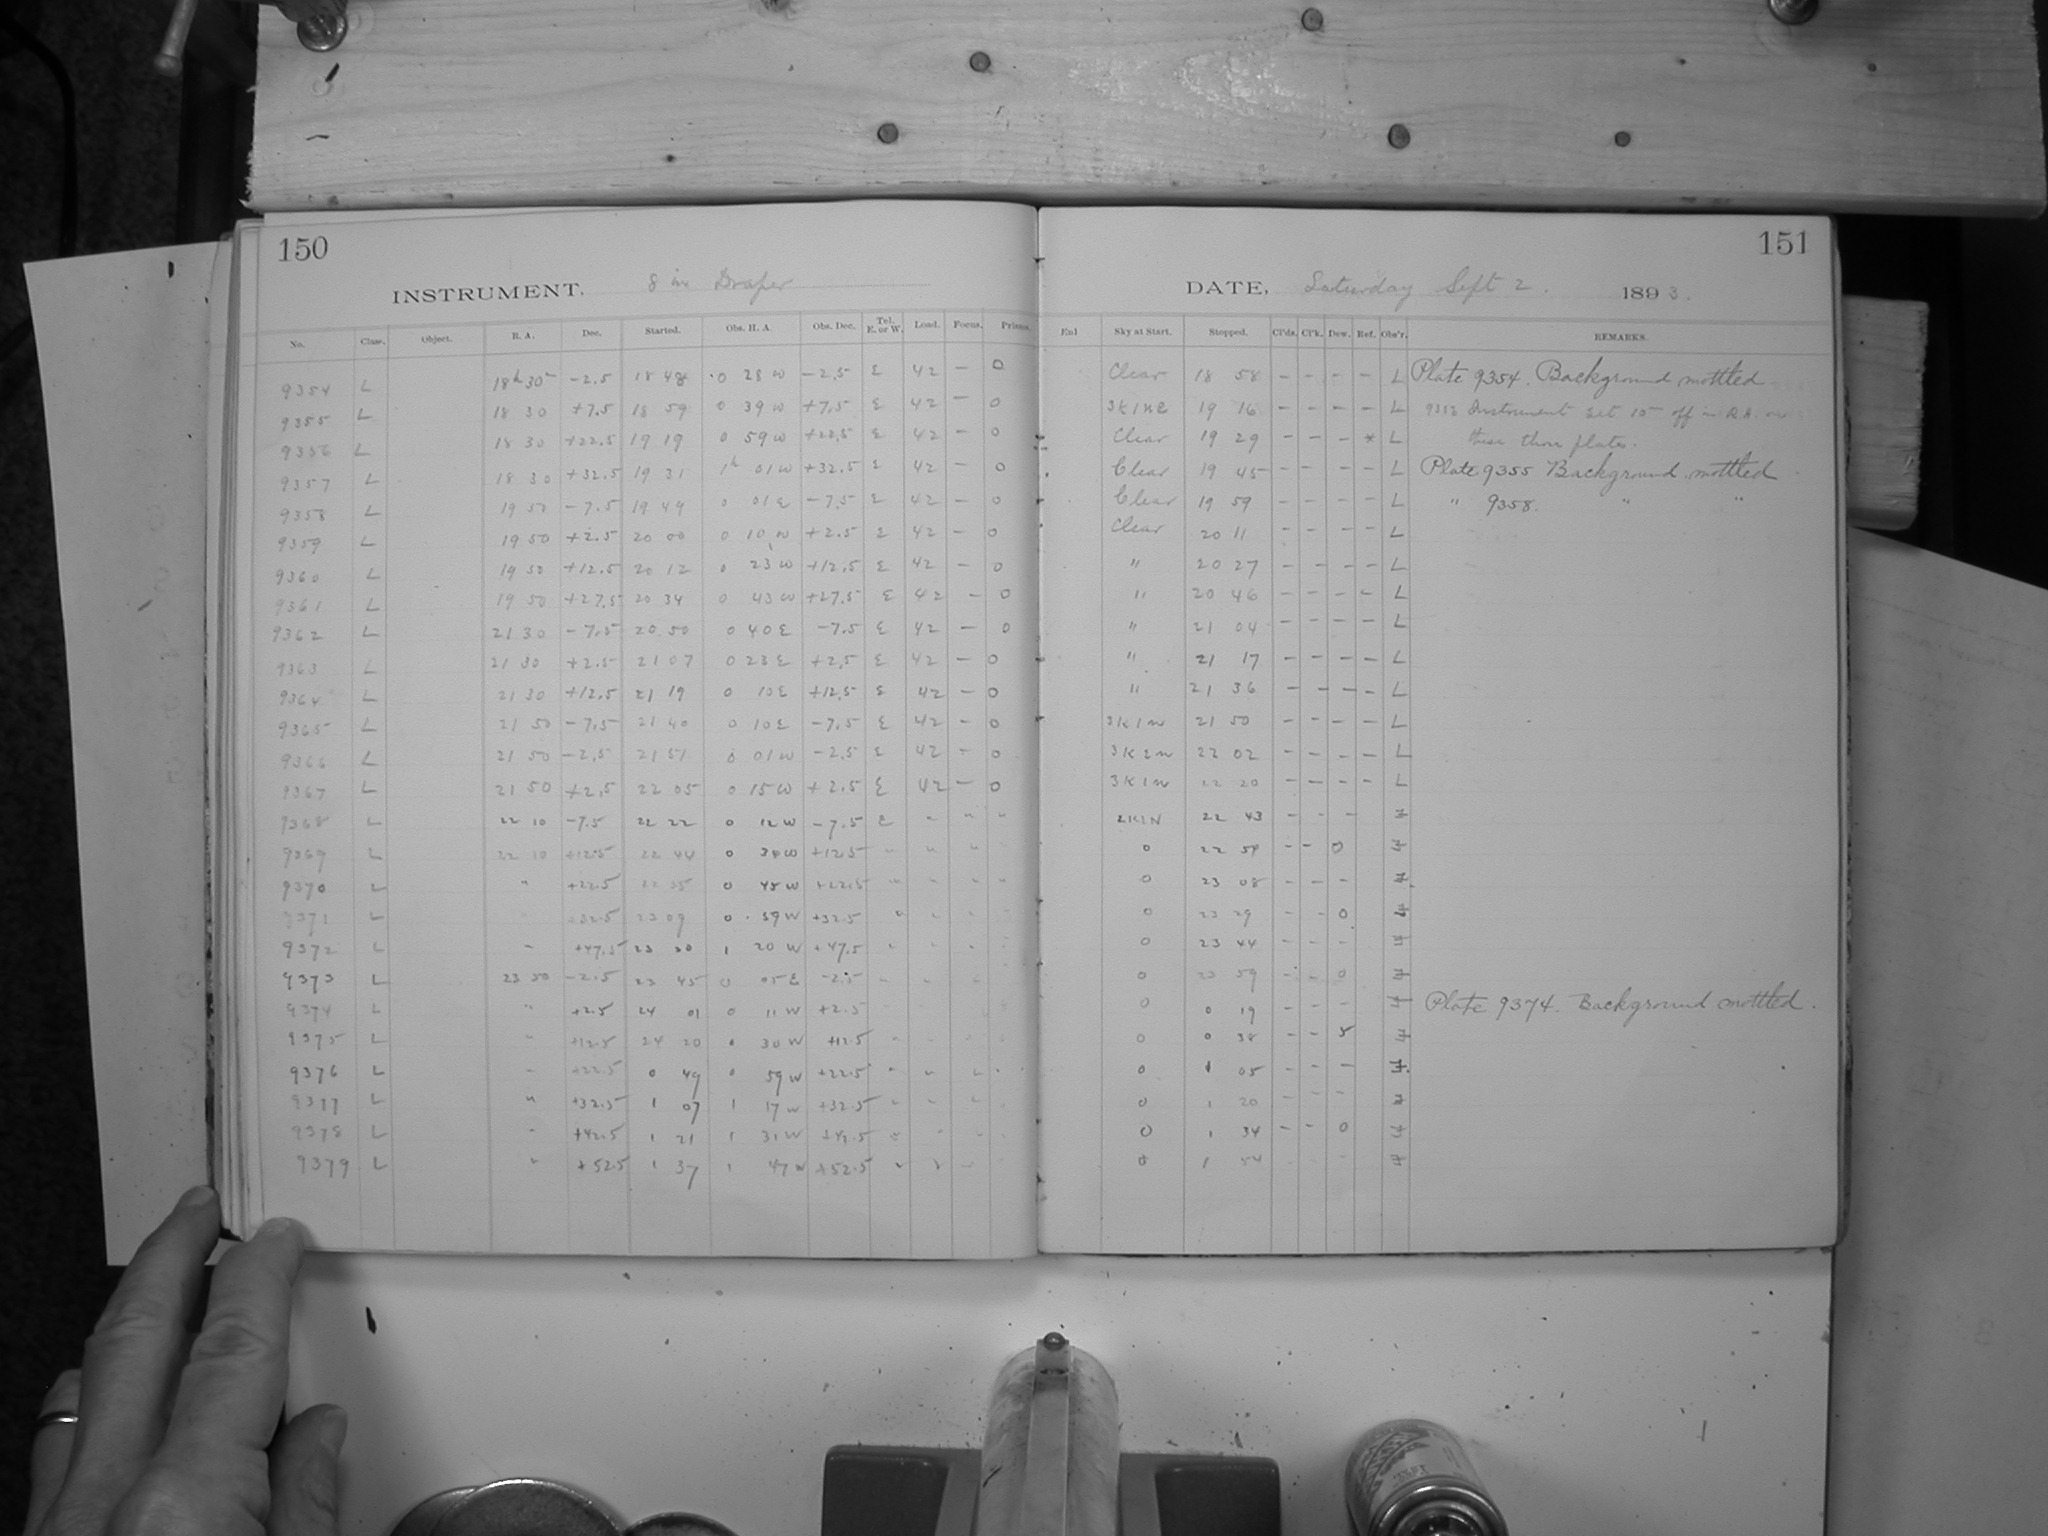 150
INSTRUMENT. 8 in Draper
No. Class. Object. R. A. Dec. Started. Obs. H. A. Obs. Dec. Tel. E. or W. Load. Focus. Prisms.
9354 L 18h 30m -2.5 18 48 0 28 W -2.5 E 42 - 0
9355 L 18 30 +7.5 18 59 0 39 W +7.5 E 42 - 0
9356 L 18 30 +22.5 19 19 0 59 W +22.5 E 42 - 0
9357 L 18 30 +32.5 19 31 1h 01 W +32.5 E 42 - 0
9358 L 19 50 -7.5 19 49 0 01 E -7.5 E 42 - 0
9359 L 19 50 +2.5 20 00 0 10 W +2.5 E 42 - 0
9360 L 19 50 +12.5 20 12 0 23 W +12.5 E 42 - 0
9361 L 19 50 +27.5 20 34 0 43 W +27.5 E 42 - 0
9362 L 21 30 -7.5 20 50 0 40 E -7.5 E 42 - 0
9363 L 21 30 +2.5 21 07 0 23 E +2.5 E 42 - 0
9364 L 21 30 +12.5 21 19 0 10 E +12.5 E 42 - 0
9365 L 21 50 -7.5 21 40 0 10 E -7.5 E 42 - 0
9366 L 21 50 -2.5 21 51 0 01 W -2.5 E 42 - 0
9367 L 21 50 +2.5 22 05 0 15 W +2.5 E 42 - 0
9368 L 22 10 -7.5 22 22 0 12 W -7.5 E " " "
9369 L 22 10 +12.5 22 44 0 34 W +12.5 " " "
9370 L " +22.5 0 45 W +22.5 " " " "
9371 L +32.5 23 09 0 59 W +32.5 " " "
9372 L " +47.5 23 30 1 20 W +47.5 " " "
9373 L 23 50 -2.5 23 45 0 05 E -2.5 " " "
9374 L " +2.5 24 01 0 11 W +2.5
9375 L " +12.5 24 20 0 30 W +12.5 " "
9376 L " +22.5 0 49 0 59 W +22.5 " " "
9377 L " +32.5 1 07 1 17 W +32.5 " " "
9378 L " +42.5 1 21 1 31 W +42.5 " " "
9379 L " +52.5 1 37 1 47 W +52.5 " " "
151
DATE, Saturday Sept 2. 1893.
Sky at Start. Stopped. Cl'ds. Cl'k. Dew. Ref. Obs'r. REMARKS.
Clear 18 58 - - - - L Plate 9354. Background mottled
19 16 - - - - L Instrument set 10m off in R.A. on
Clear 19 29 - - - * L these three plates.
Clear 19 45 - - - - L Plate 9355 Background mottled
Clear 19 59 - - - - L " 9358. " "
Clear 20 11 - - - - L
" 20 27 - - - - L
" 20 46 - - - - L
" 21 04 - - - - L
" 21 17 - - - - L
" 21 36 - - - - L
3K1N 21 50 - - - - L
3K2N 22 02 - - - - L
3K1N 22 20 - - - - L
2K2N 22 43 - - -
0 22 59 - - 0
0 23 08 - - -
0 23 29 - - 0
0 23 44 - - -
0 23 59 - - 0
0 0 19 - - - Plate 9374. Background mottled.
0 0 38 - - 5
0 1 05 - - -
0 1 20 - - -
0 1 34 - - 0
0 1 54 - - -